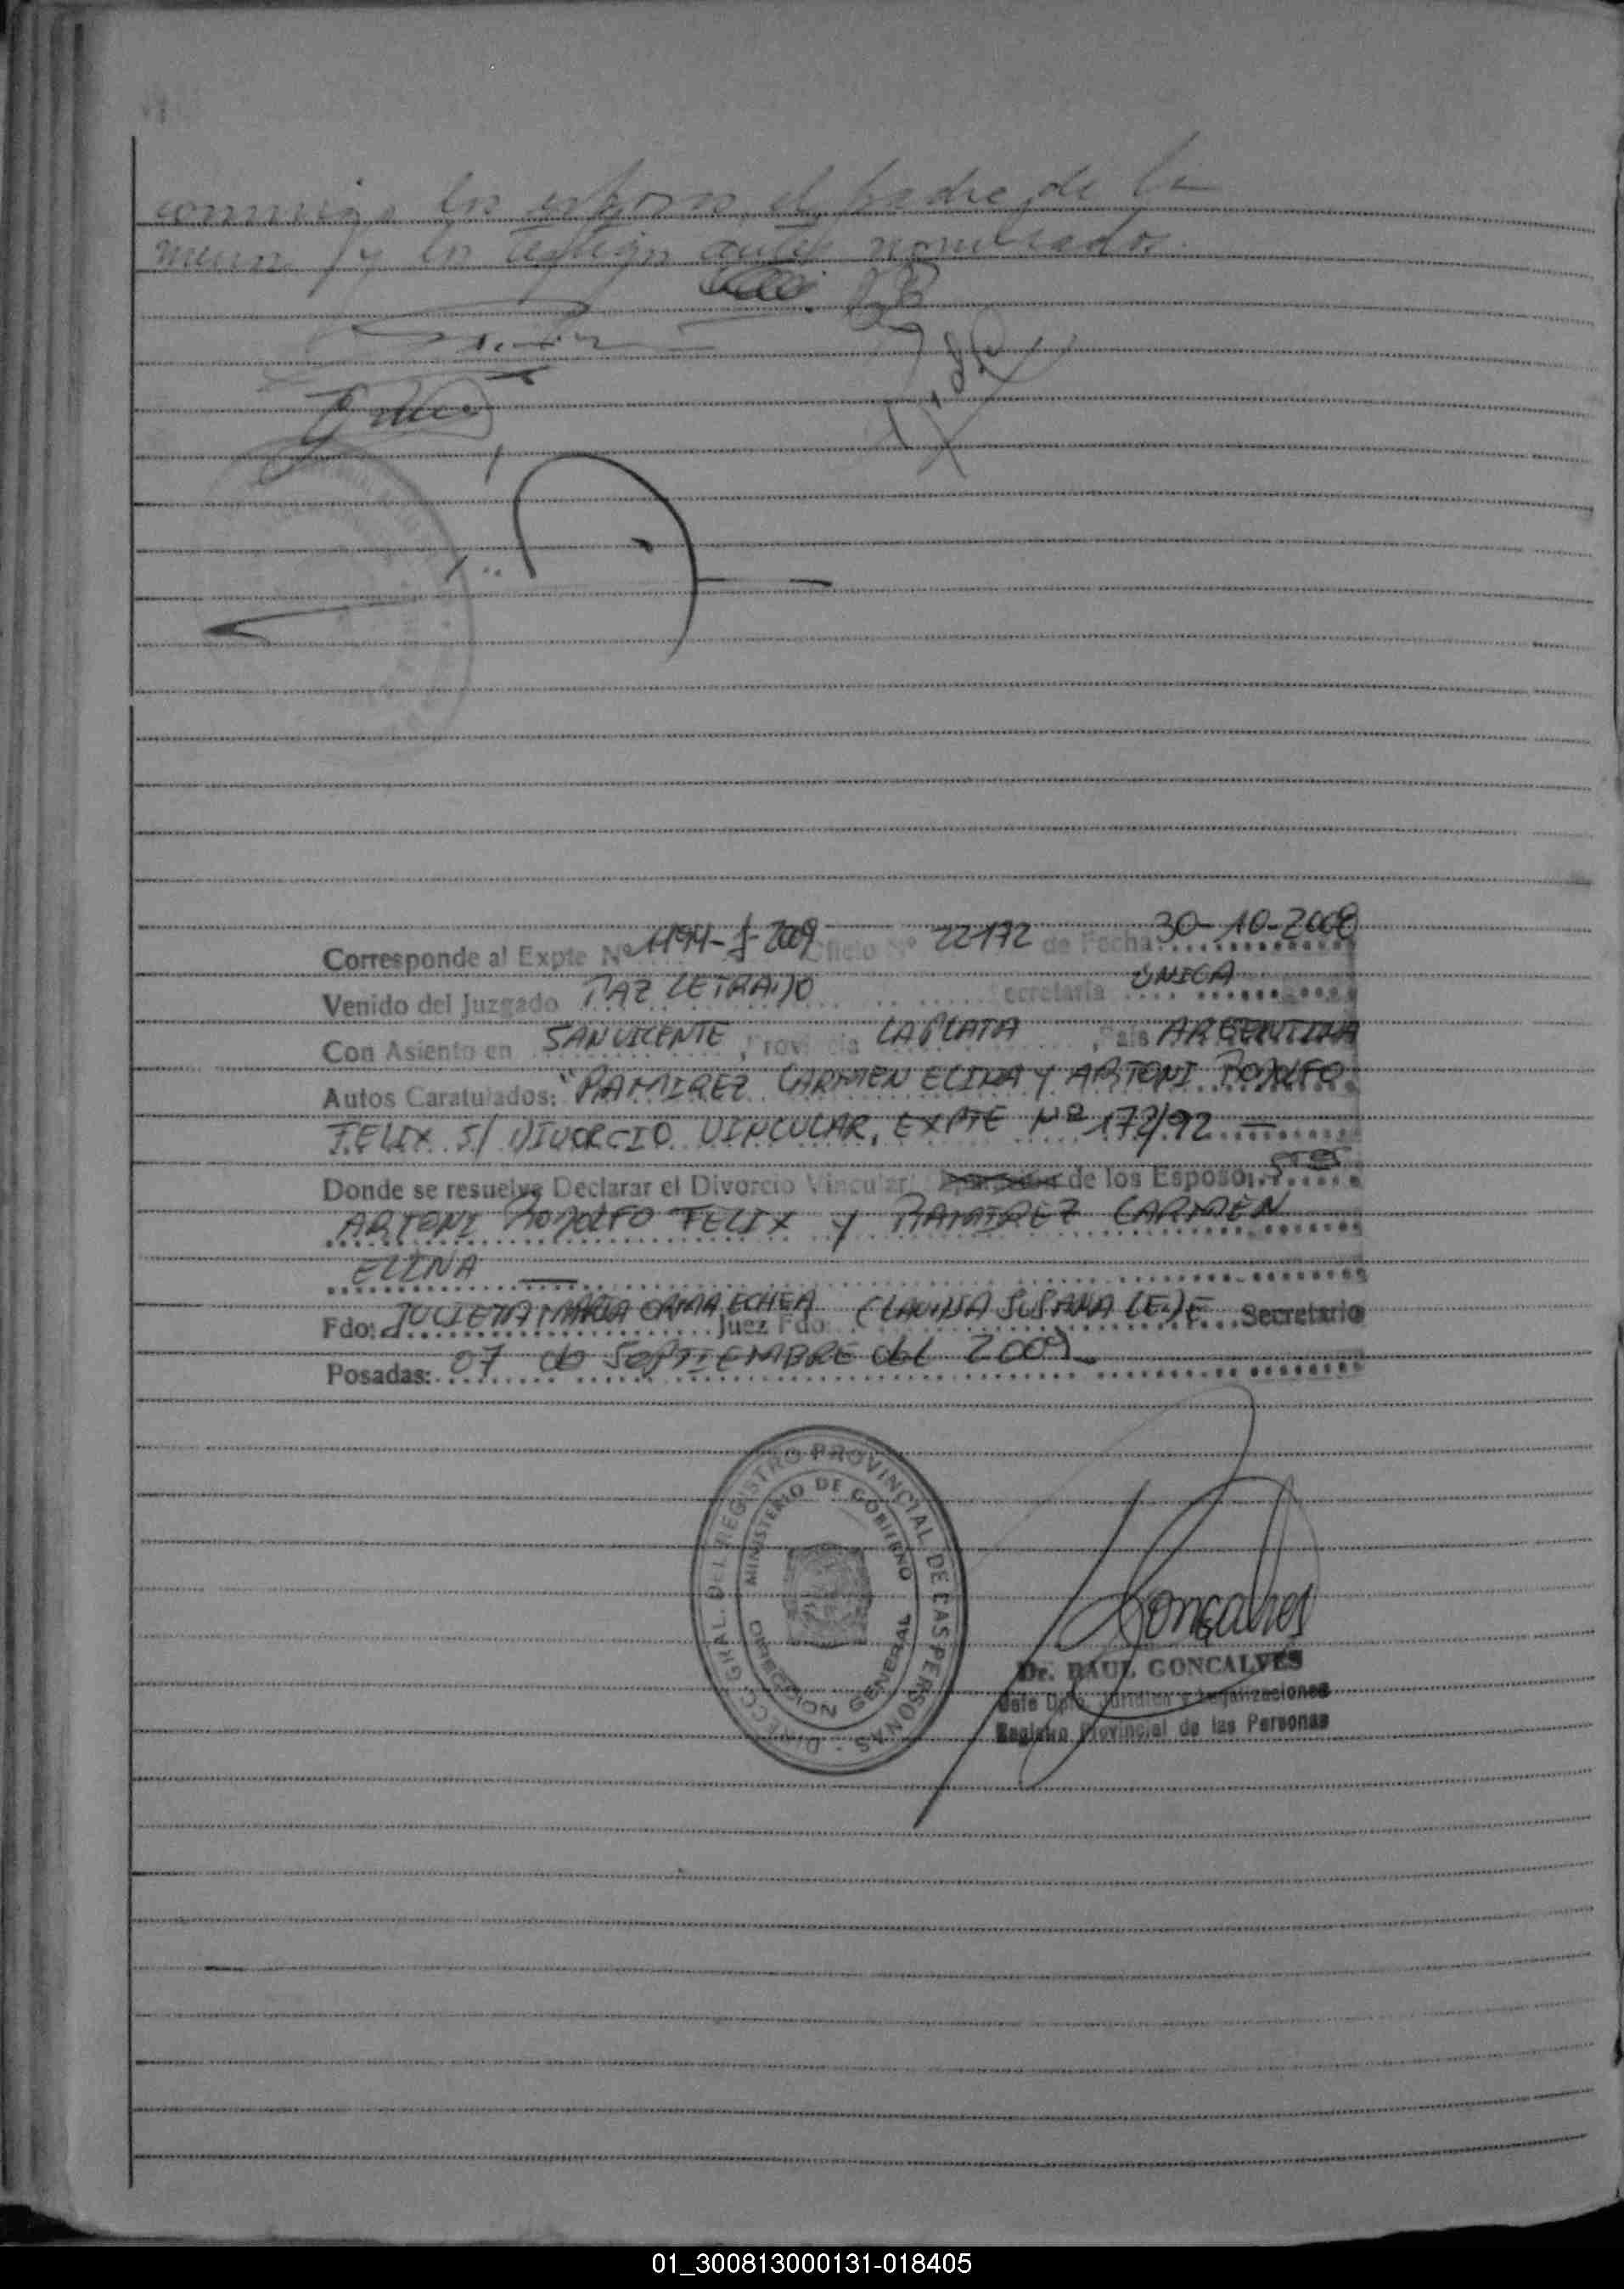 conmigo los esposos, el padre de la
menor y los testigos antes nombrados.
Corresponde al Expte Nº 1194-J-2009 Oficio Nº 22172 de Fecha: 30-10-2008
Venido del Juzgado PAZ LETRADO Secretaria UNICA
Con Asiento en SAN VICENTE, Provincia LA PLATA, Pais ARGENTINA
Autos Caratulados: "RAMIREZ CARMEN ELINA Y ARTONI RODOLFO
FELIX S/ DIVORCIO VINCULAR, EXPTE Nº 172/92 =
Donde se resuelve Declarar el Divorcio Vincular de los Esposos
ARTONI RODOLFO FELIX y RAMIREZ CARMEN
ELINA
Fdo: JULIETA MARIA ORMAECHEA Juez Fdo: CLAUDIA SUSANA Secretario
Posadas: 07 de SEPTIEMBRE del 2009
DIRECC. GRAL. DEL REGISTRO PROVINCIAL DE LAS PERSONAS
MINISTERIO DE GOBIERNO
DIRECCION GENERAL
Goncalves
Dr. RAUL GONCALVES
Jefe Dpto. Jurídico y Legalizaciones
Registro Provincial de las Personas
01_300813000131-018405